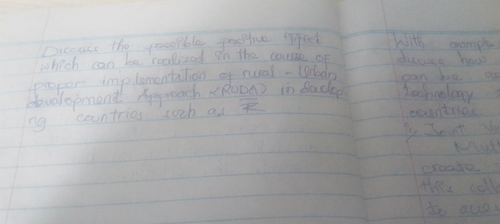 Discuss the possible positive effect
which can be realized in the course of
proper implementation of rural - Urban
development Approach (RUDA) in develop
ng countries such as
With example
discuss how
can be
technology
countries
Joint V
Mul
create
the coll
te acce